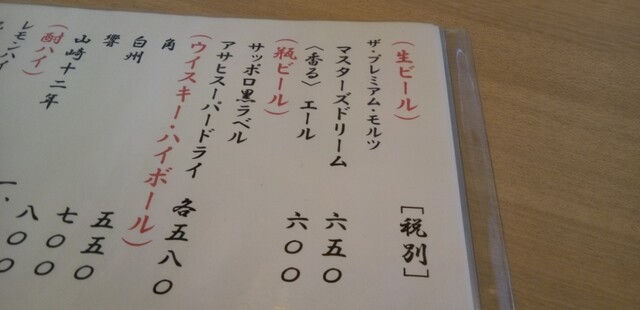 （生ビール）
［税別］
ザ・プレミアム・モルツ
マスターズドリーム 六五〇
〈香る〉エール 六〇〇
（瓶ビール）
サッポロ黒ラベル
アサヒスーパードライ 各五八〇
（ウイスキー・ハイボール）
角 五五〇
白州 七〇〇
響 八〇〇
山崎十二年 一、
（酎ハイ）
レモンハイ